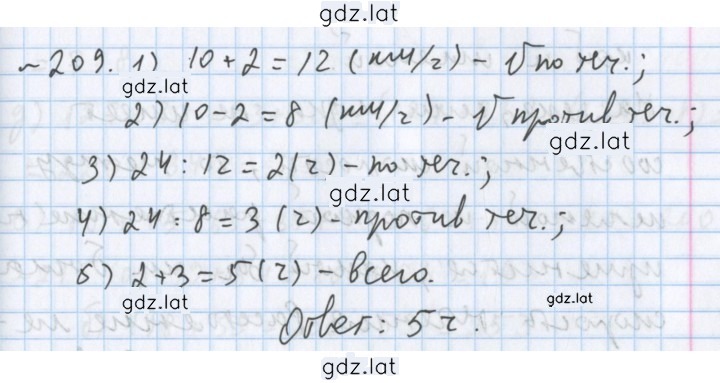 gdz.lat
№209. 1) 10 + 2 = 12 (км/ч) - V по теч.;
gdz.lat
2) 10 - 2 = 8 (км/ч) - V против теч.;
gdz.lat
3) 24 : 12 = 2 (ч) - по теч.;
gdz.lat
4) 24 : 8 = 3 (ч) - против теч.;
gdz.lat
5) 2 + 3 = 5 (ч) - всего.
gdz.lat
gdz.lat
Ответ: 5 ч.
gdz.lat